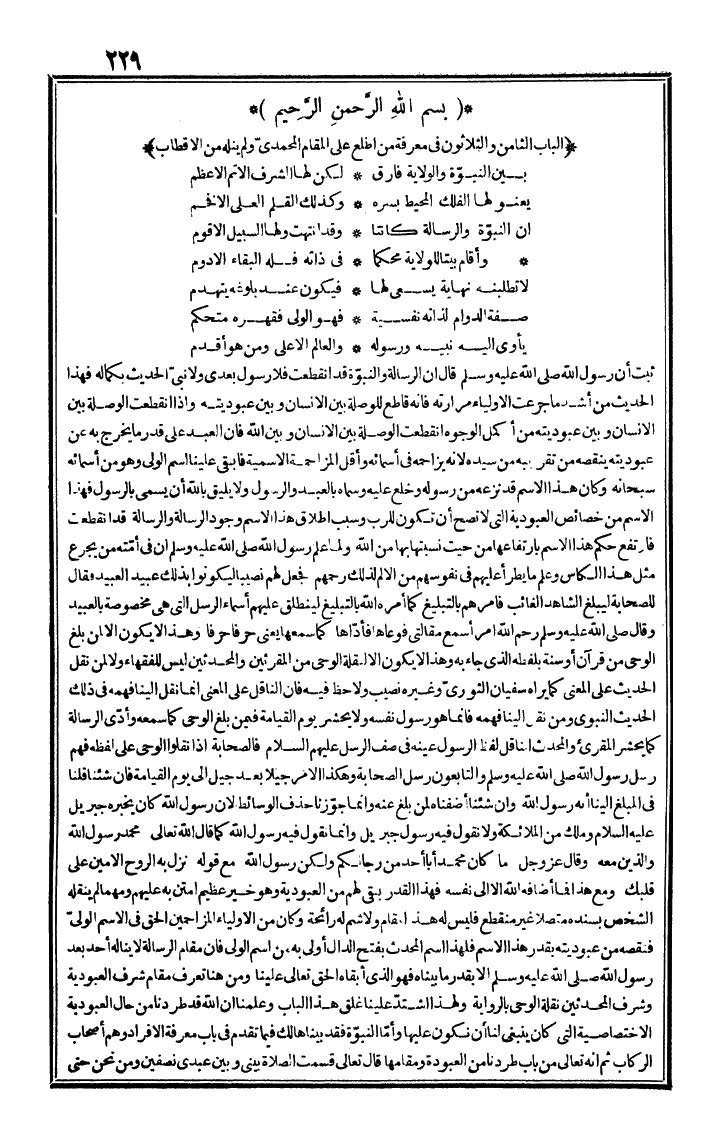 ٢٢٩
*( بسم الله الرَّحمنِ الرَّحيم )*
﴿الباب الثامن والثلاثون فى معرفة من اطلع على المقام المحمدىّ ولم ينله من الاقطاب﴾
بـين النبـوّة والولاية فارق * لـكن لها الشرف الاتم الاعظم
يعنـو لها الفلك المحيط بسره * وكذلك القـلم العـلى الافخم
ان النبوّة والرسالة كانتا * وقد انتهت ولها السبيل الاقوم
* وأقام بيتا للولاية محكما * فى ذاته فـله البقاء الادوم
لا تطلبنـه نهاية يسـعى لها * فيكون عنـد بلوغه يتهدم
صـفة الدوام لذاته نفسـية * فهـو الولى فقهـره متحكم
يأوى اليـه نبيـه ورسوله * والعالم الاعلى ومن هو أقدم
ثبت أن رسول الله صلى الله عليه وسلم قال ان الرسالة والنبوّة قد انقطعت فلا رسول بعدى ولا نبىّ الحديث بكماله فهذا
الحديث من أشد ما جرعت الاولياء مرارته فانه قاطع للوصلة بين الانسان وبين عبوديته واذا انقطعت الوصلة بين
الانسان وبين عبوديته من أكمل الوجوه انقطعت الوصلة بين الانسان وبين الله فان العبد على قدر ما يخرج به عن
عبوديته ينقصه من تقريبه من سيده لانه يزاحمه فى أسمائه وأقل المزاحمة الاسمية فابقى علينا اسم الولى وهو من أسمائه
سبحانه وكان هذا الاسم قد نزعه من رسوله وخلع عليه وسماه بالعبد والرسول ولا يليق بالله أن يسمى بالرسول فهذا
الاسم من خصائص العبودية التى لا تصح أن تكون للرب وسبب اطلاق هذا الاسم وجود الرسالة والرسالة قد انقطعت
فارتفع حكم هذا الاسم بارتفاعها من حيث نسبتها بها من الله ولما علم رسول الله صلى الله عليه وسلم ان فى أمّته من يجرع
مثل هذا الكاس وعلم ما يطرأ عليهم فى نفوسهم من الالم لذلك رحمهم فجعل لهم نصيبا ليكونوا بذلك عبيد العبيد فقال
للصحابة ليبلغ الشاهد الغائب فامرهم بالتبليغ كما أمره الله بالتبليغ لينطلق عليهم أسماء الرسل التى هى مخصوصة بالعبيد
وقال صلى الله عليه وسلم رحم الله امرأ سمع مقالتى فوعاها فأدّاها كما سمعها يعنى حرفا حرفا وهذا لا يكون الا لمن بلغ
الوحى من قرآن أو سنة بلفظه الذى جاء به وهذا لا يكون الا لنقلة الوحى من المقرئين والمحدثين ليس للفقهاء ولا لمن نقل
الحديث على المعنى كما يراه سفيان الثورىّ وغيره نصيب ولا حظ فيه فان الناقل على المعنى انما نقل الينا فهمه فى ذلك
الحديث النبوى ومن نقل الينا فهمه فانما هو رسول نفسه ولا يحشر يوم القيامة فيمن بلغ الوحى كما سمعه وأدّى الرسالة
كما يحشر المقرئ والمحدث الناقل لفظ الرسول عينه فى صف الرسل عليهم السلام فالصحابة اذا نقلوا الوحى على لفظه فهم
رسل رسول الله صلى الله عليه وسلم والتابعون رسل الصحابة وهكذا الامر جيلا بعد جيل الى يوم القيامة فان شئنا قلنا
فى المبلغ الينا انه رسول الله وان شئنا أضفناه لمن بلغ عنه وانما جوّزنا حذف الوسائط لان رسول الله كان يخبره جبريل
عليه السلام وملك من الملائكة ولا نقول فيه رسول جبريل وانما نقول فيه رسول الله كما قال الله تعالى محمد رسول الله
والذين معه وقال عز وجل ما كان محمد أبا أحد من رجالكم ولكن رسول الله مع قوله نزل به الروح الامين على
قلبك ومع هذا فما أضافه الله الا الى نفسه فهذا القدر بقى لهم من العبودية وهو خير عظيم امتن به عليهم ومهما لم ينقله
الشخص بسنده متصلا غير منقطع فليس له هذا المقام ولا شم له رائحة وكان من الاولياء المزاحمين الحق فى الاسم الولىّ
فنقصه من عبوديته بقدر هذا الاسم فلهذا اسم المحدث بفتح الدال أولى به من اسم الولى فان مقام الرسالة لا يناله أحد بعد
رسول الله صلى الله عليه وسلم الا بقدر ما بيناه فهو الذى أبقاه الحق تعالى علينا ومن هنا تعرف مقام شرف العبودية
وشرف المحدثين نقلة الوحى بالرواية ولهذا اشتدّ علينا غلق هذا الباب وعلمنا ان الله قد طردنا من حال العبودية
الاختصاصية التى كان ينبغى لنا أن نكون عليها وأمّا النبوّة فقد بيناها لك فيما تقدم فى باب معرفة الافراد وهم أصحاب
الركاب ثم انه تعالى من باب طردنا من العبودة ومقامها قال تعالى قسمت الصلاة بينى وبين عبدى نصفين ومن نحن حتى